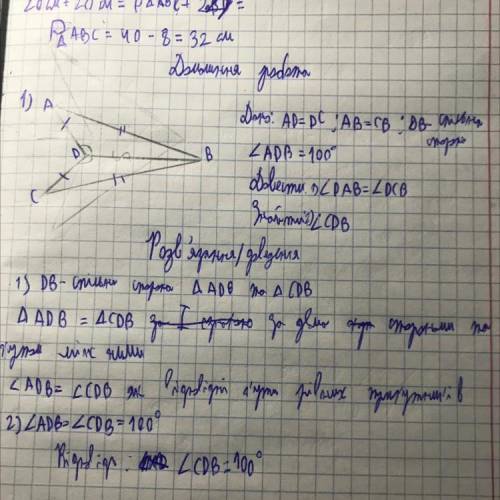 20см + 20см = P△ABC + 2
P△ABC = 40 - 8 = 32 см
Домашня робота
1) A
D
B
C
Дано: AD=DC; AB=CB; DB - спільна
сторона
∠ADB = 100°
Довести: ∠DAB=∠DCB
Знайти: ∠CDB
Розв'язання/доведення
1) DB - спільна сторона △ADB та △CDB
△ADB = △CDB за двома сторонами та
кутом між ними
∠ADB = ∠CDB як відповідні кути рівних трикутників
2) ∠ADB = ∠CDB = 100°
Відповідь: ∠CDB = 100°